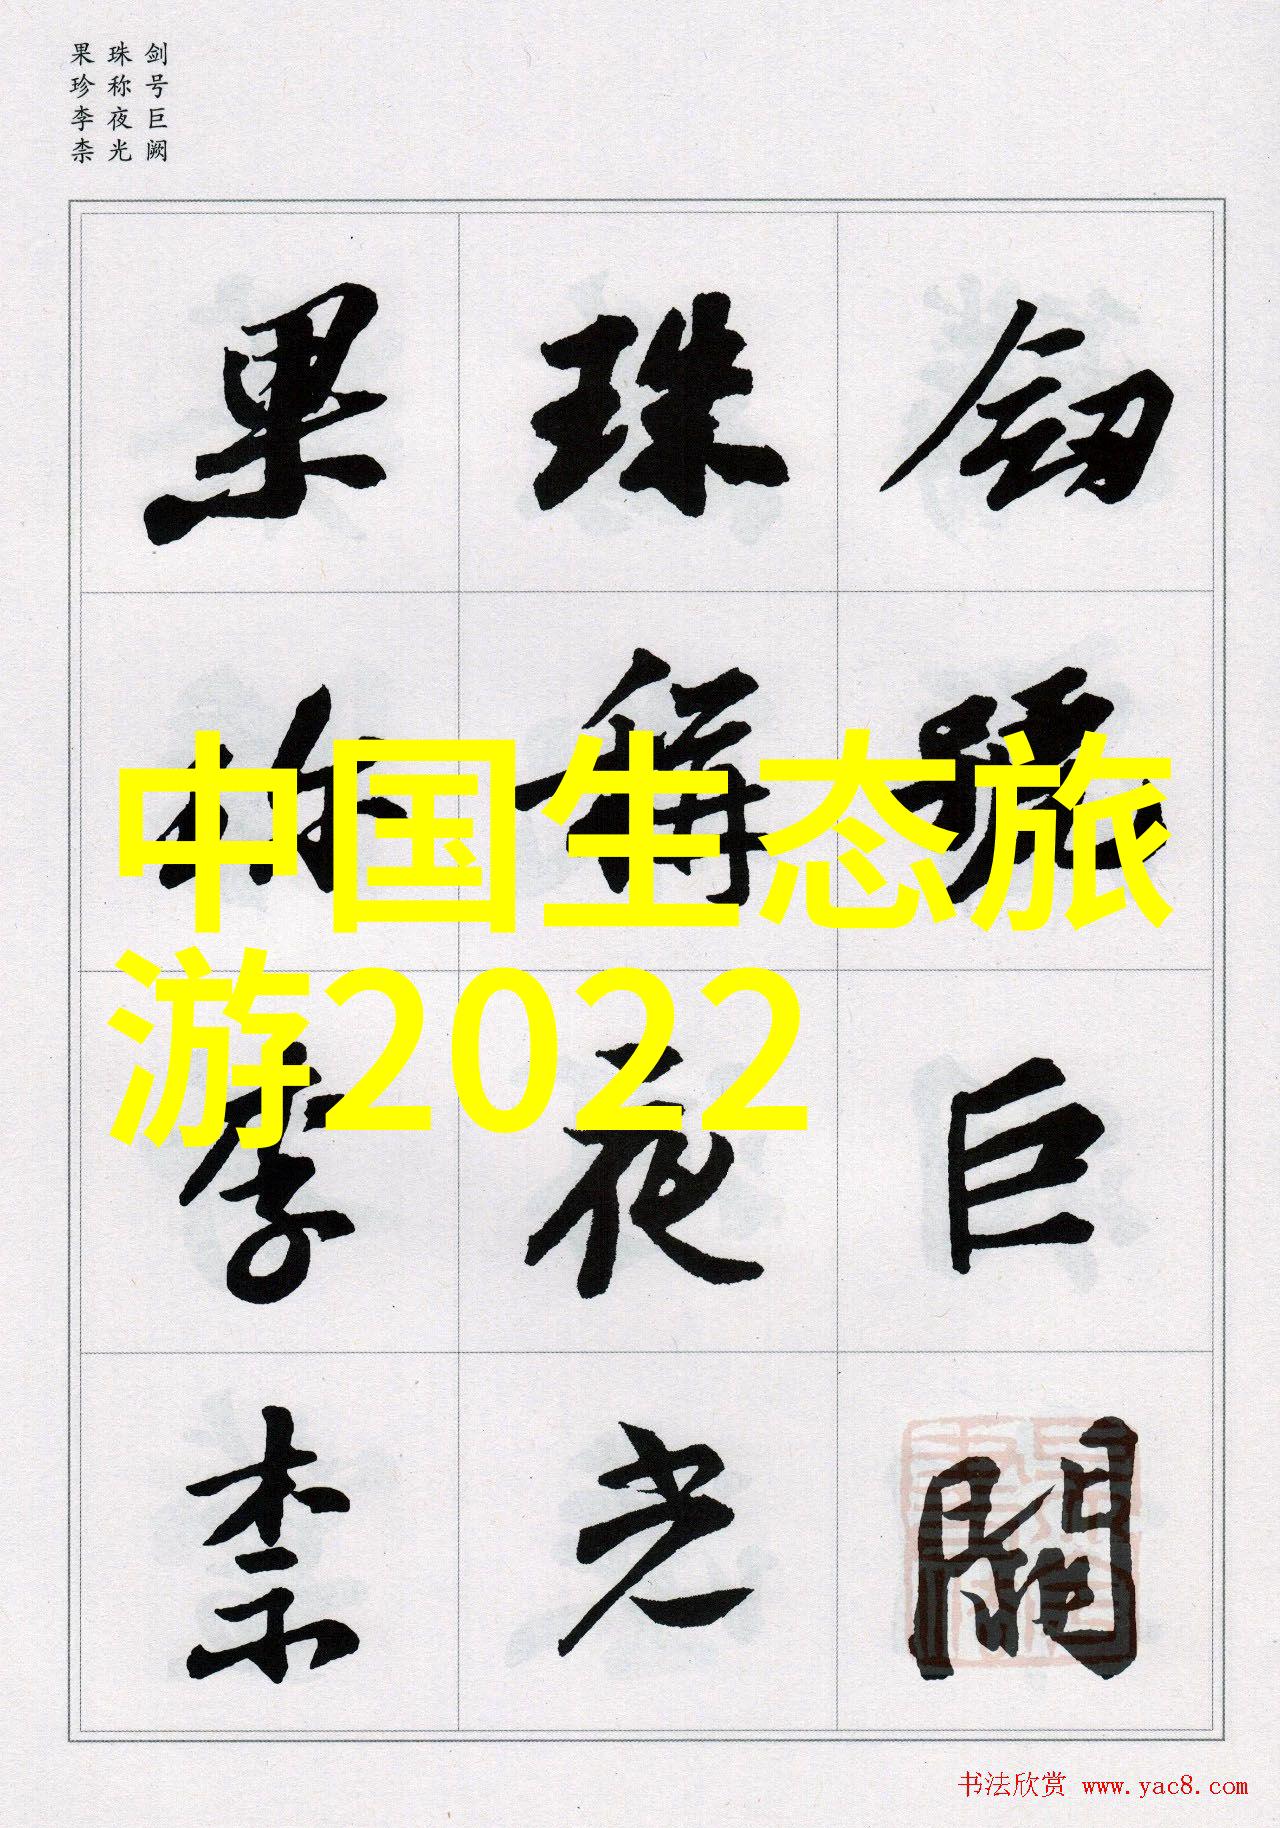 剑号巨阙
珠称夜光
果珍李柰
劎號巨闕
珠稱夜光
果珎李柰
中国生态旅
游2022
书法欣赏 www.yac8.com